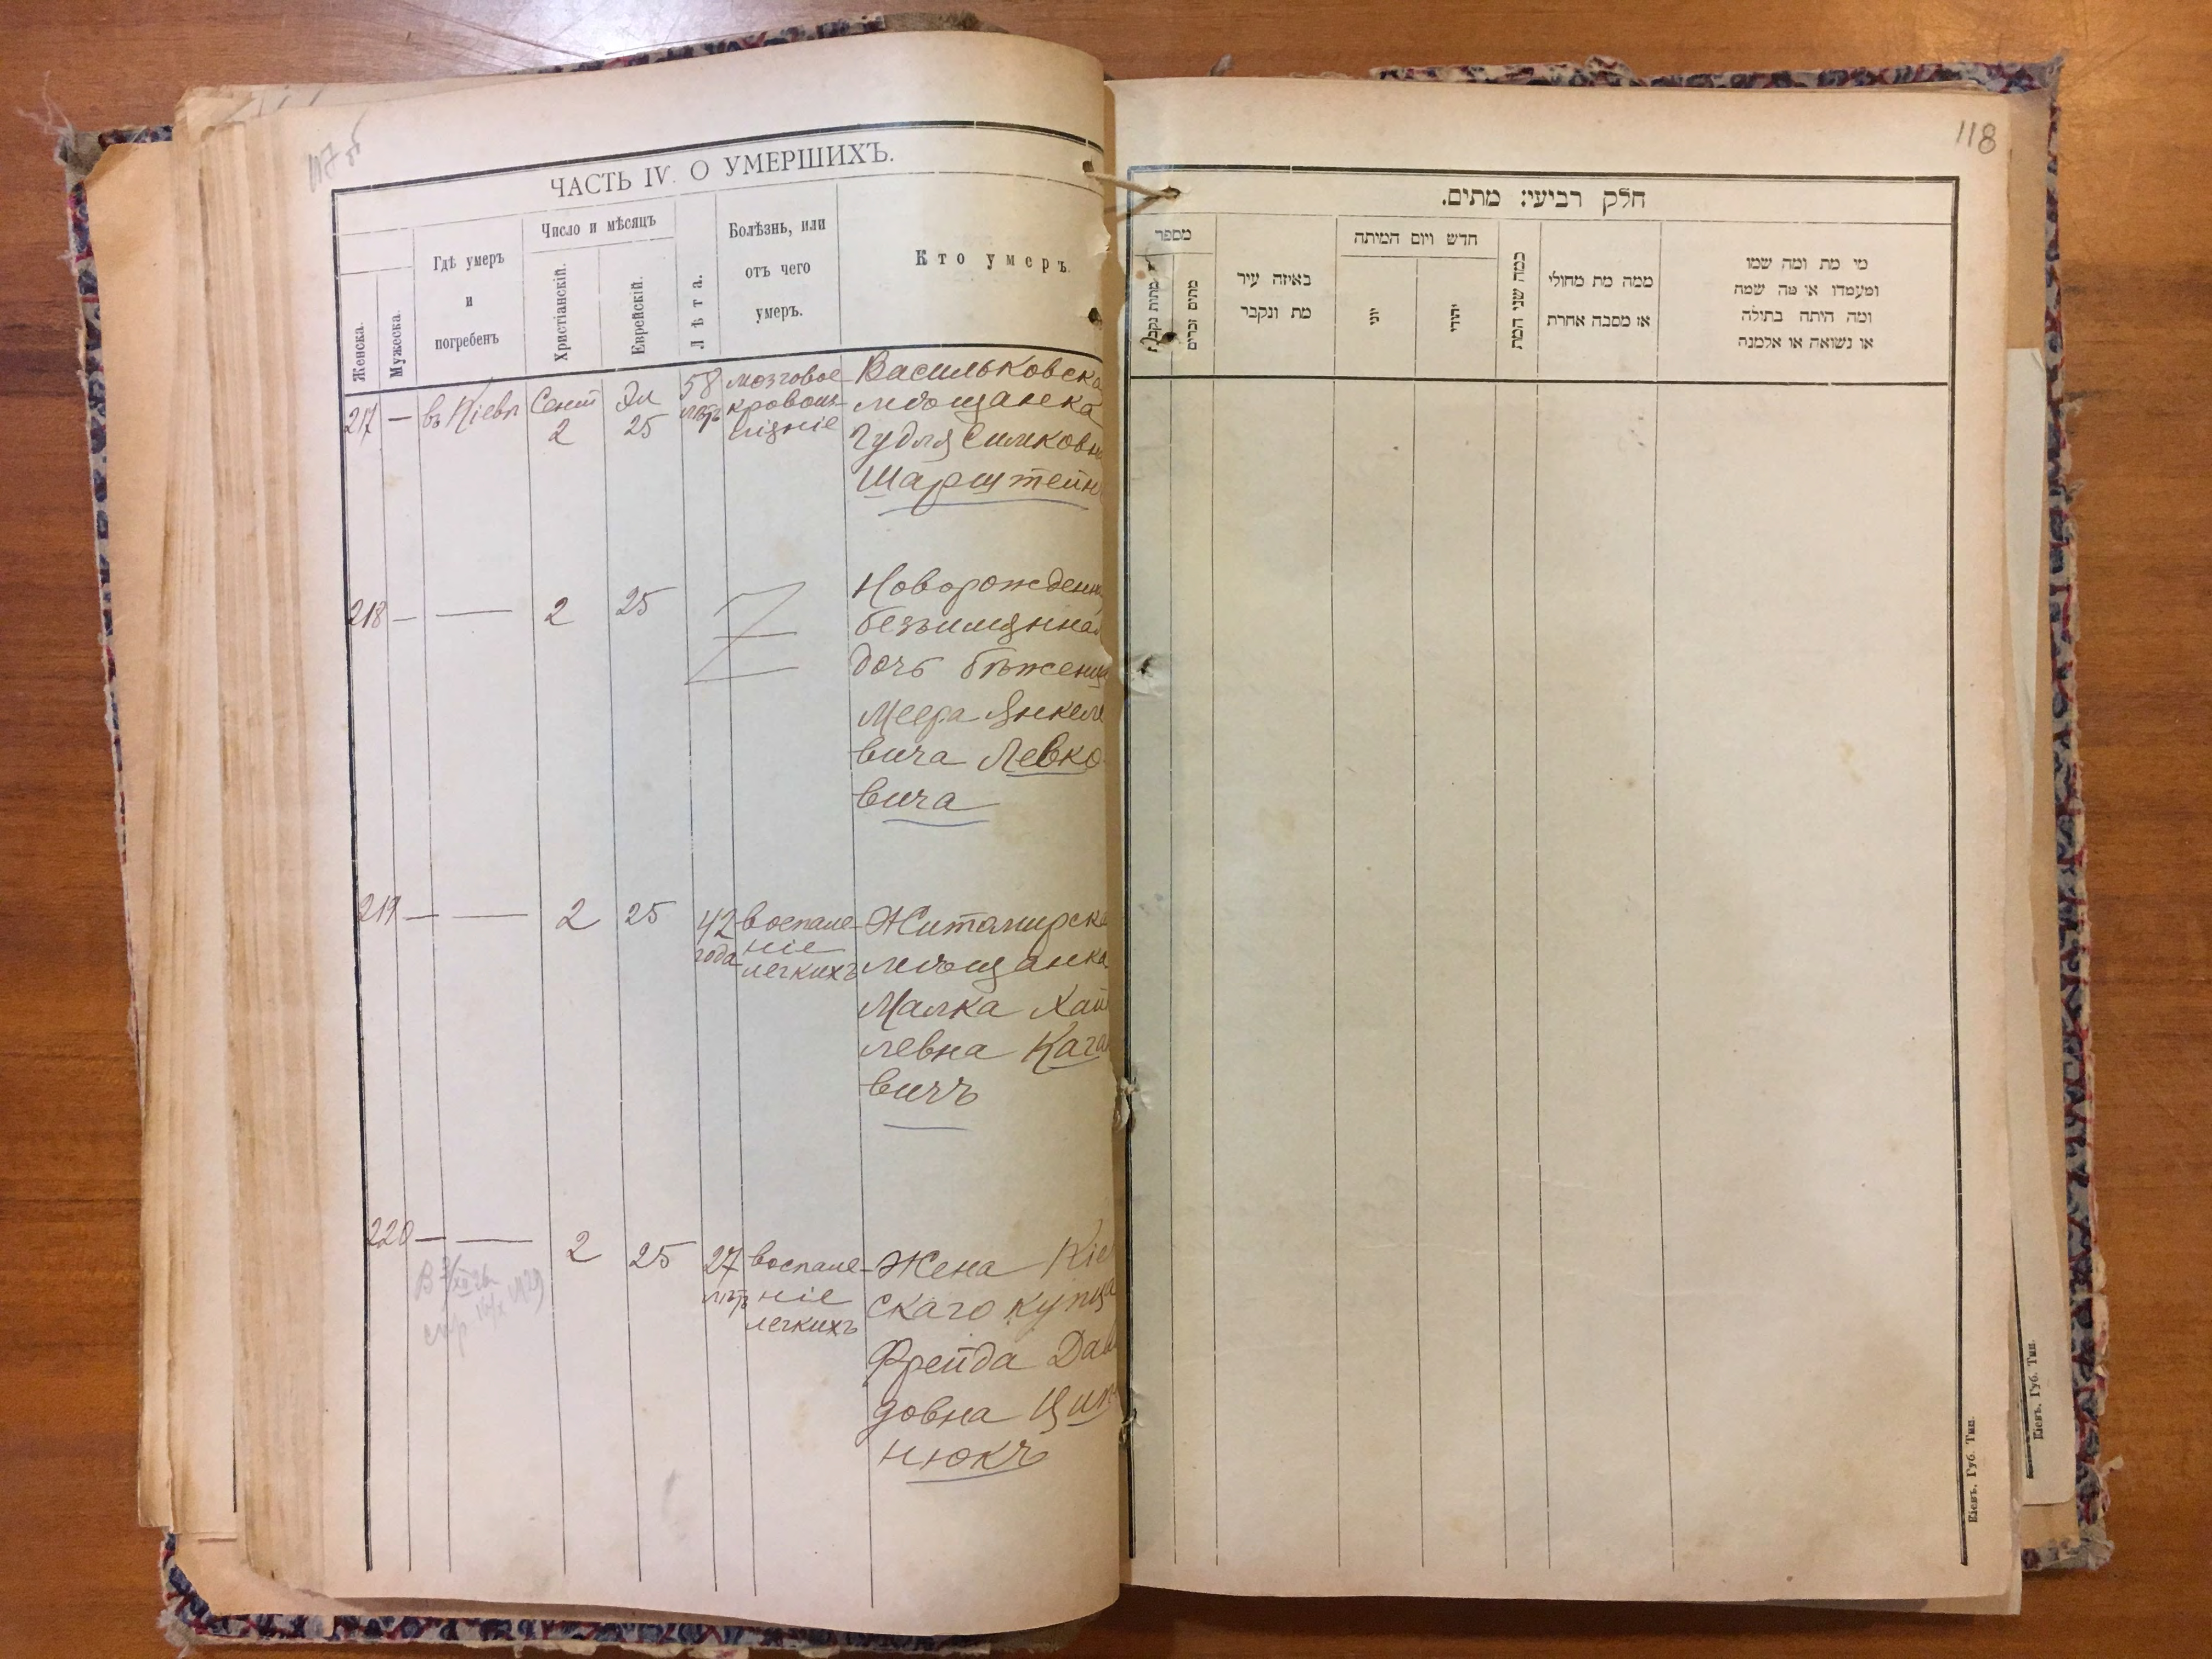 ЧАСТЬ IV. О УМЕРШИХЪ.
Женска.
Мужеска.
Гдѣ умеръ
и
погребенъ
Число и мѣсяцъ
Христіанскій.
Еврейскій.
Лѣта.
Болѣзнь, или
отъ чего
умеръ.
Кто умеръ.
217 — въ Кіевѣ Сент 2 Эл 25 58 лѣтъ мозговое
кровоиз-
ліяніе
Васильковска
мѣщанка
Гудля Симковн
Шарштейн
218 — — 2 25
Новорожденн
безъимянная
дочь бѣженца
Меера Янкеле
вича Левко-
вича
219 — — 2 25 42 года воспале-
ніе
легкихъ
Житомирска
мѣщанка
Малка Хай
левна Кага
вичъ
220 — — 2 25 27 лѣтъ воспале-
ніе
легкихъ
Жена Кіе
скаго купца
Фрейда Дав
довна Цип
нюкъ
118
חלק רביעי: מתים.
מספר
מתות נקבות
מתים זכרים
באיזה עיר
מת ונקבר
חדש ויום המיתה
יוני
יהודי
כמה שני המת
ממה מת מחולי
או מסבה אחרת
מי מת ומה שמו
ומעמדו או מה שמה
ומה היתה בתולה
או נשואה או אלמנה
Кіевъ. Губ. Тип.
Кіевъ. Губ. Тип.